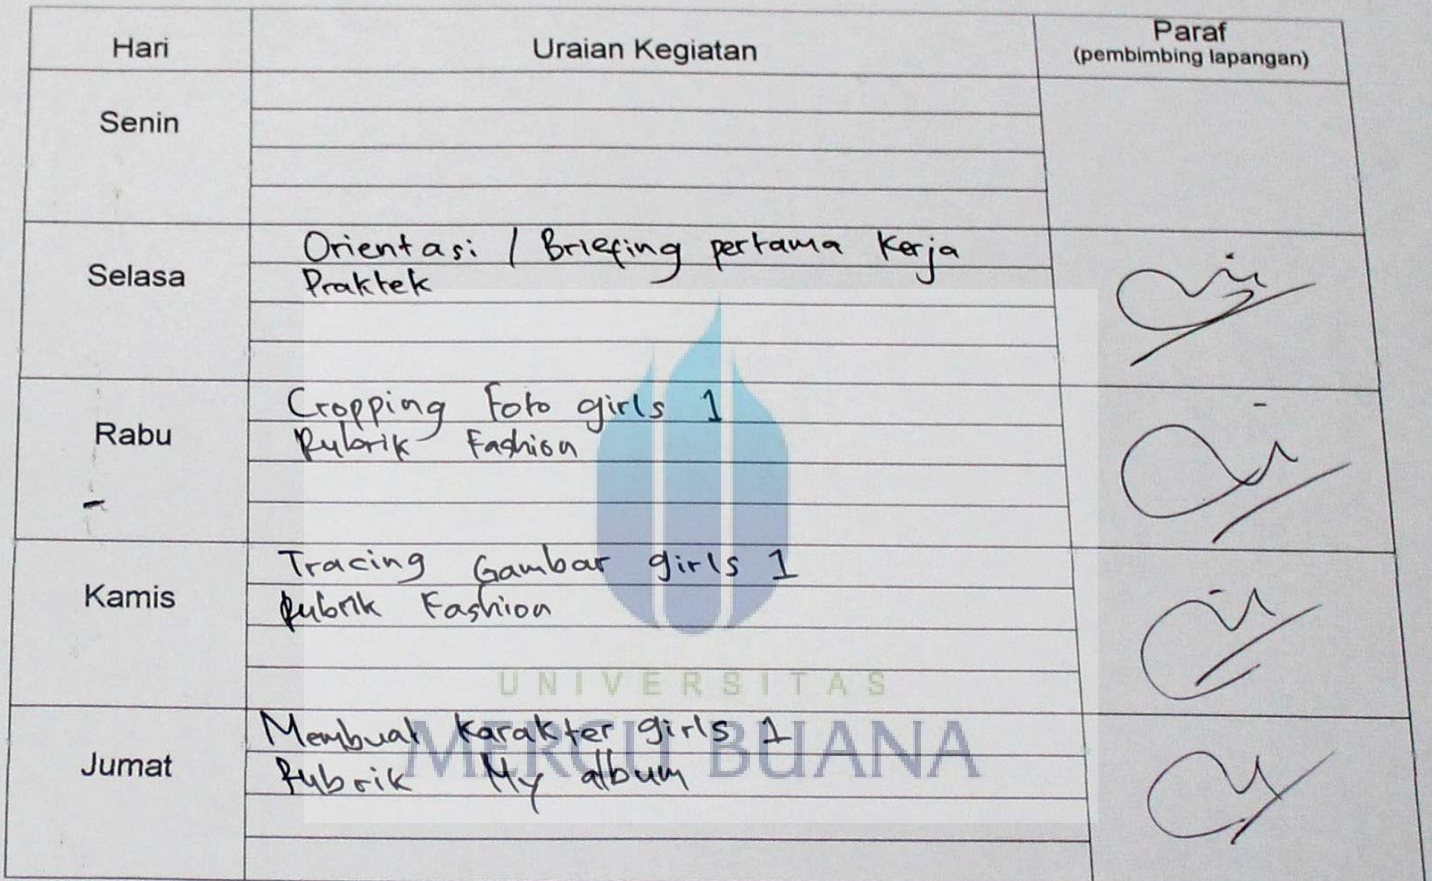 Hari
Uraian Kegiatan
Paraf
(pembimbing lapangan)
Senin
Selasa
Orientasi / Briefing pertama kerja
Praktek
Rabu
Cropping Foto girls 1
Rubrik Fashion
Kamis
Tracing Gambar girls 1
Rubrik Fashion
UNIVERSITAS
MERCU BUANA
Jumat
Membuat karakter girls 1
Rubrik My album